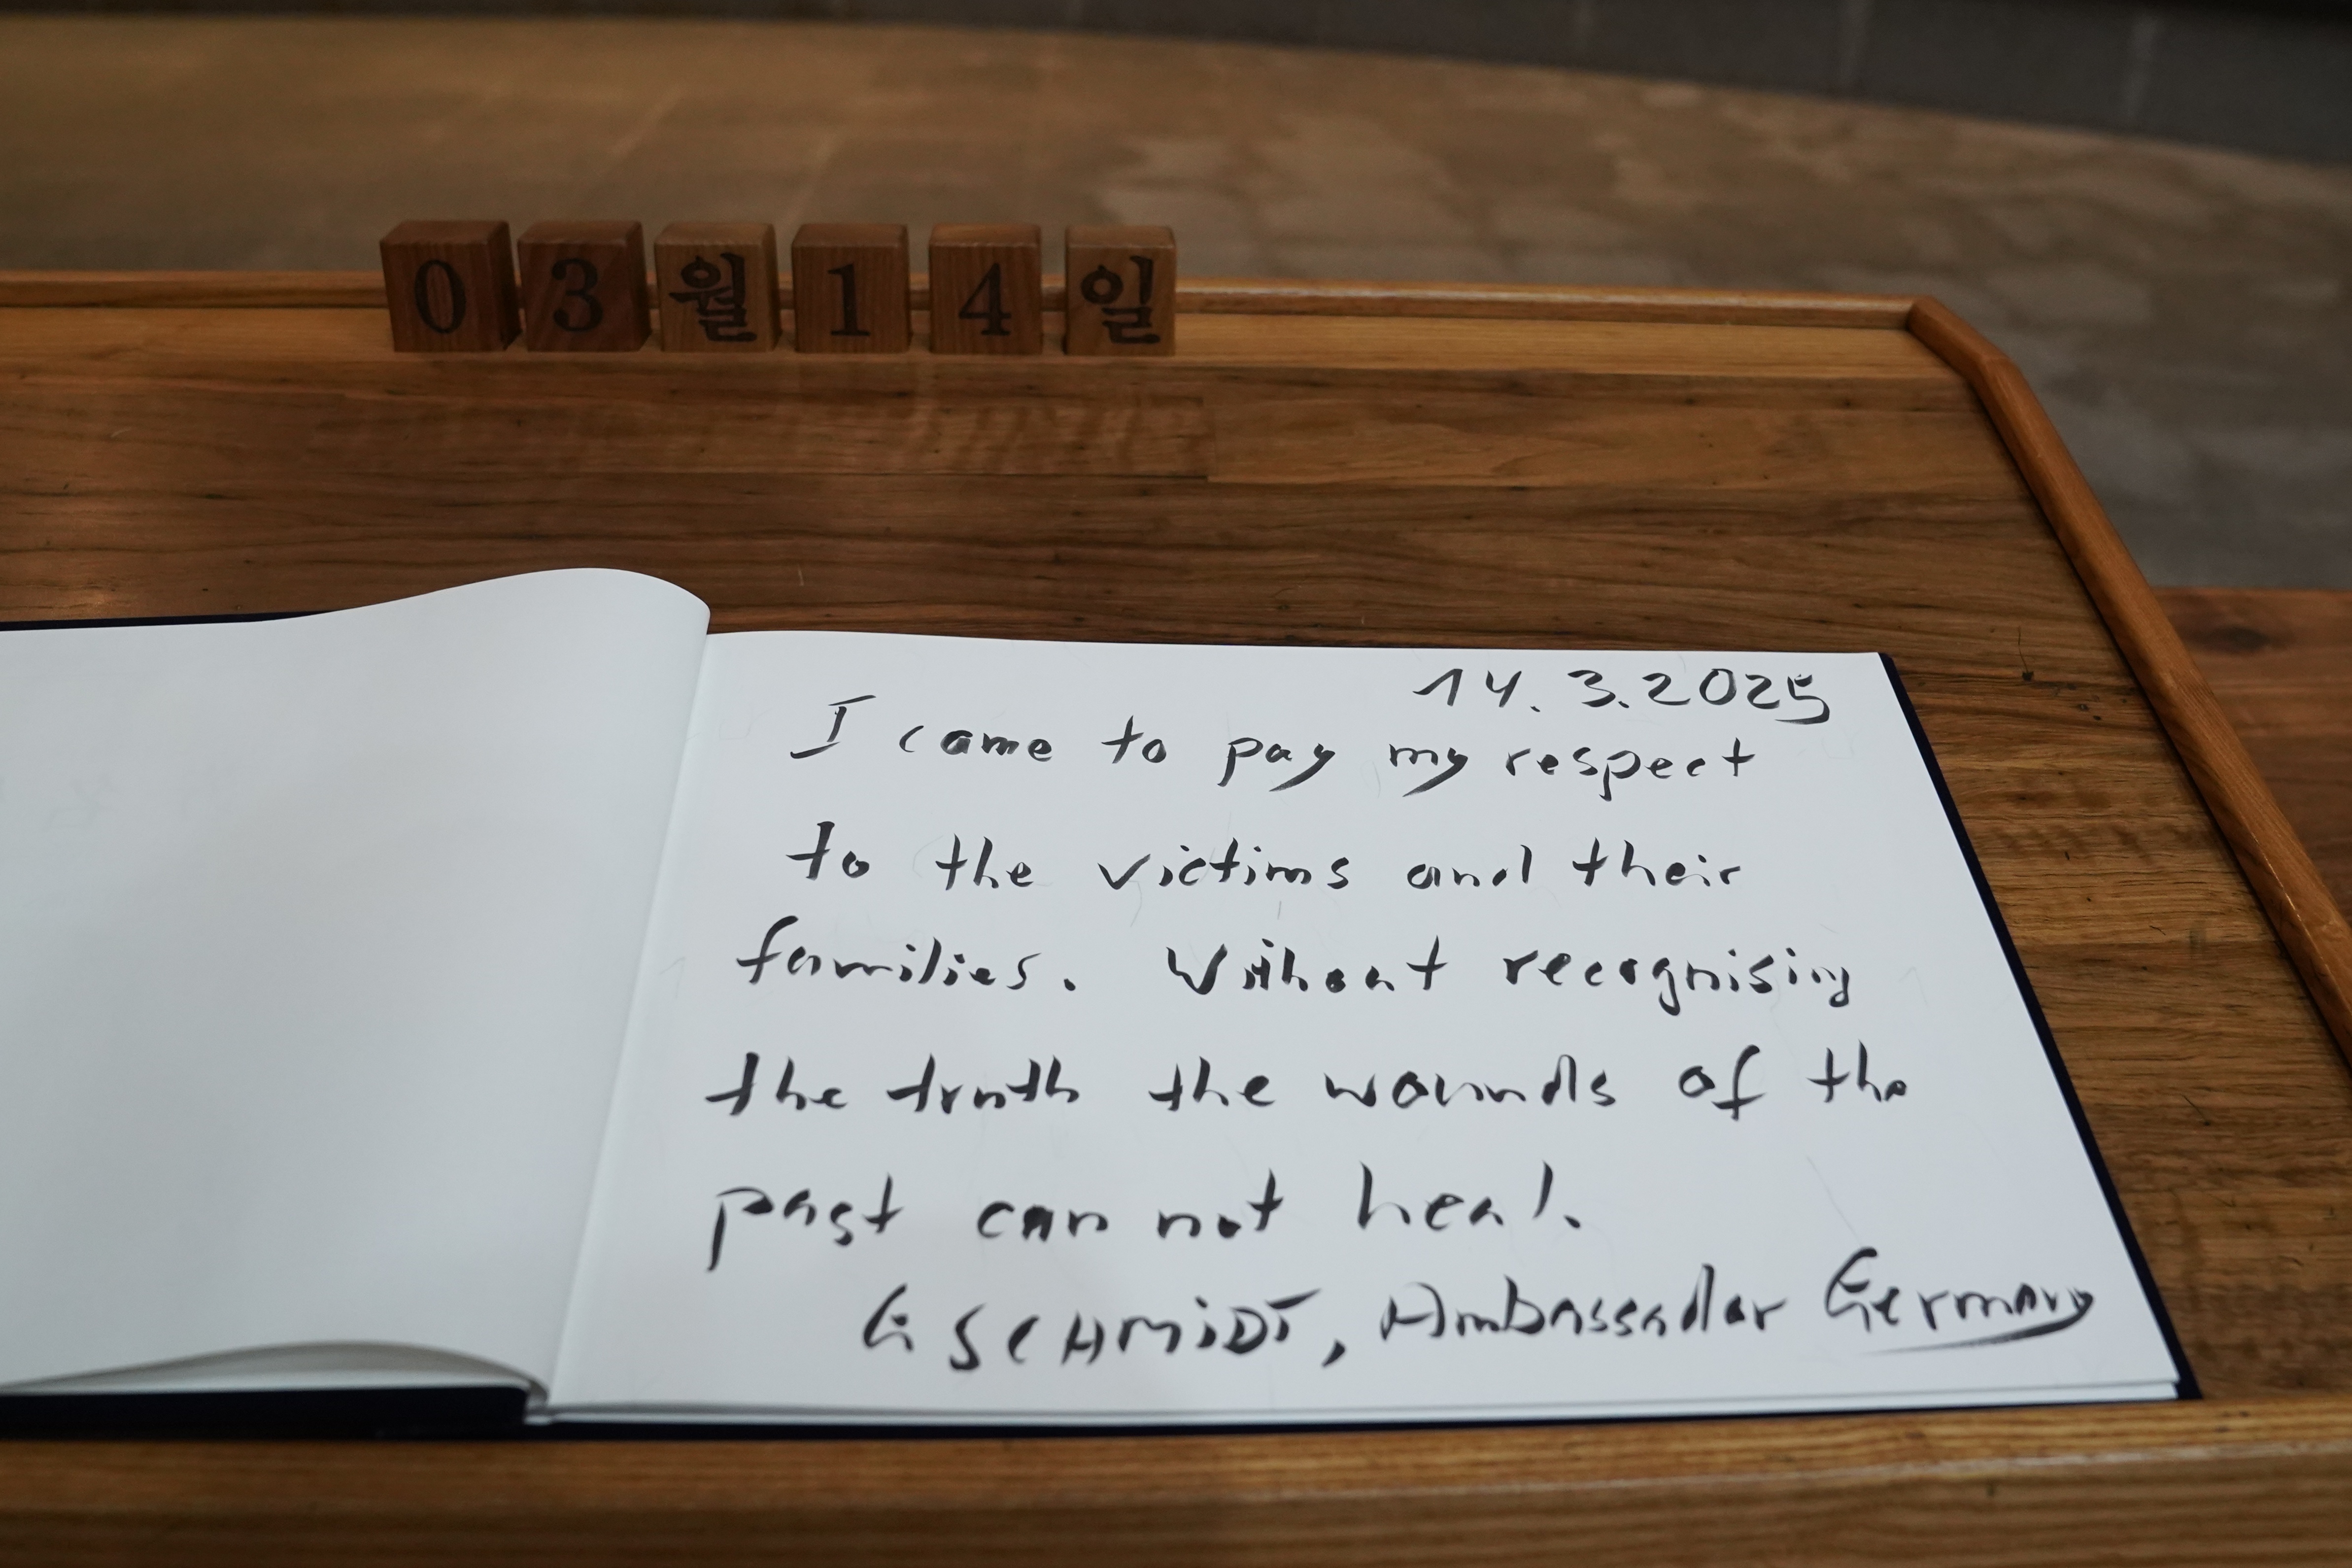 03월14일
14.3.2025
I came to pay my respect
to the victims and their
families. Without recognising
the truth the wounds of the
past can not heal.
G SCHMiDT, Ambassador Germany